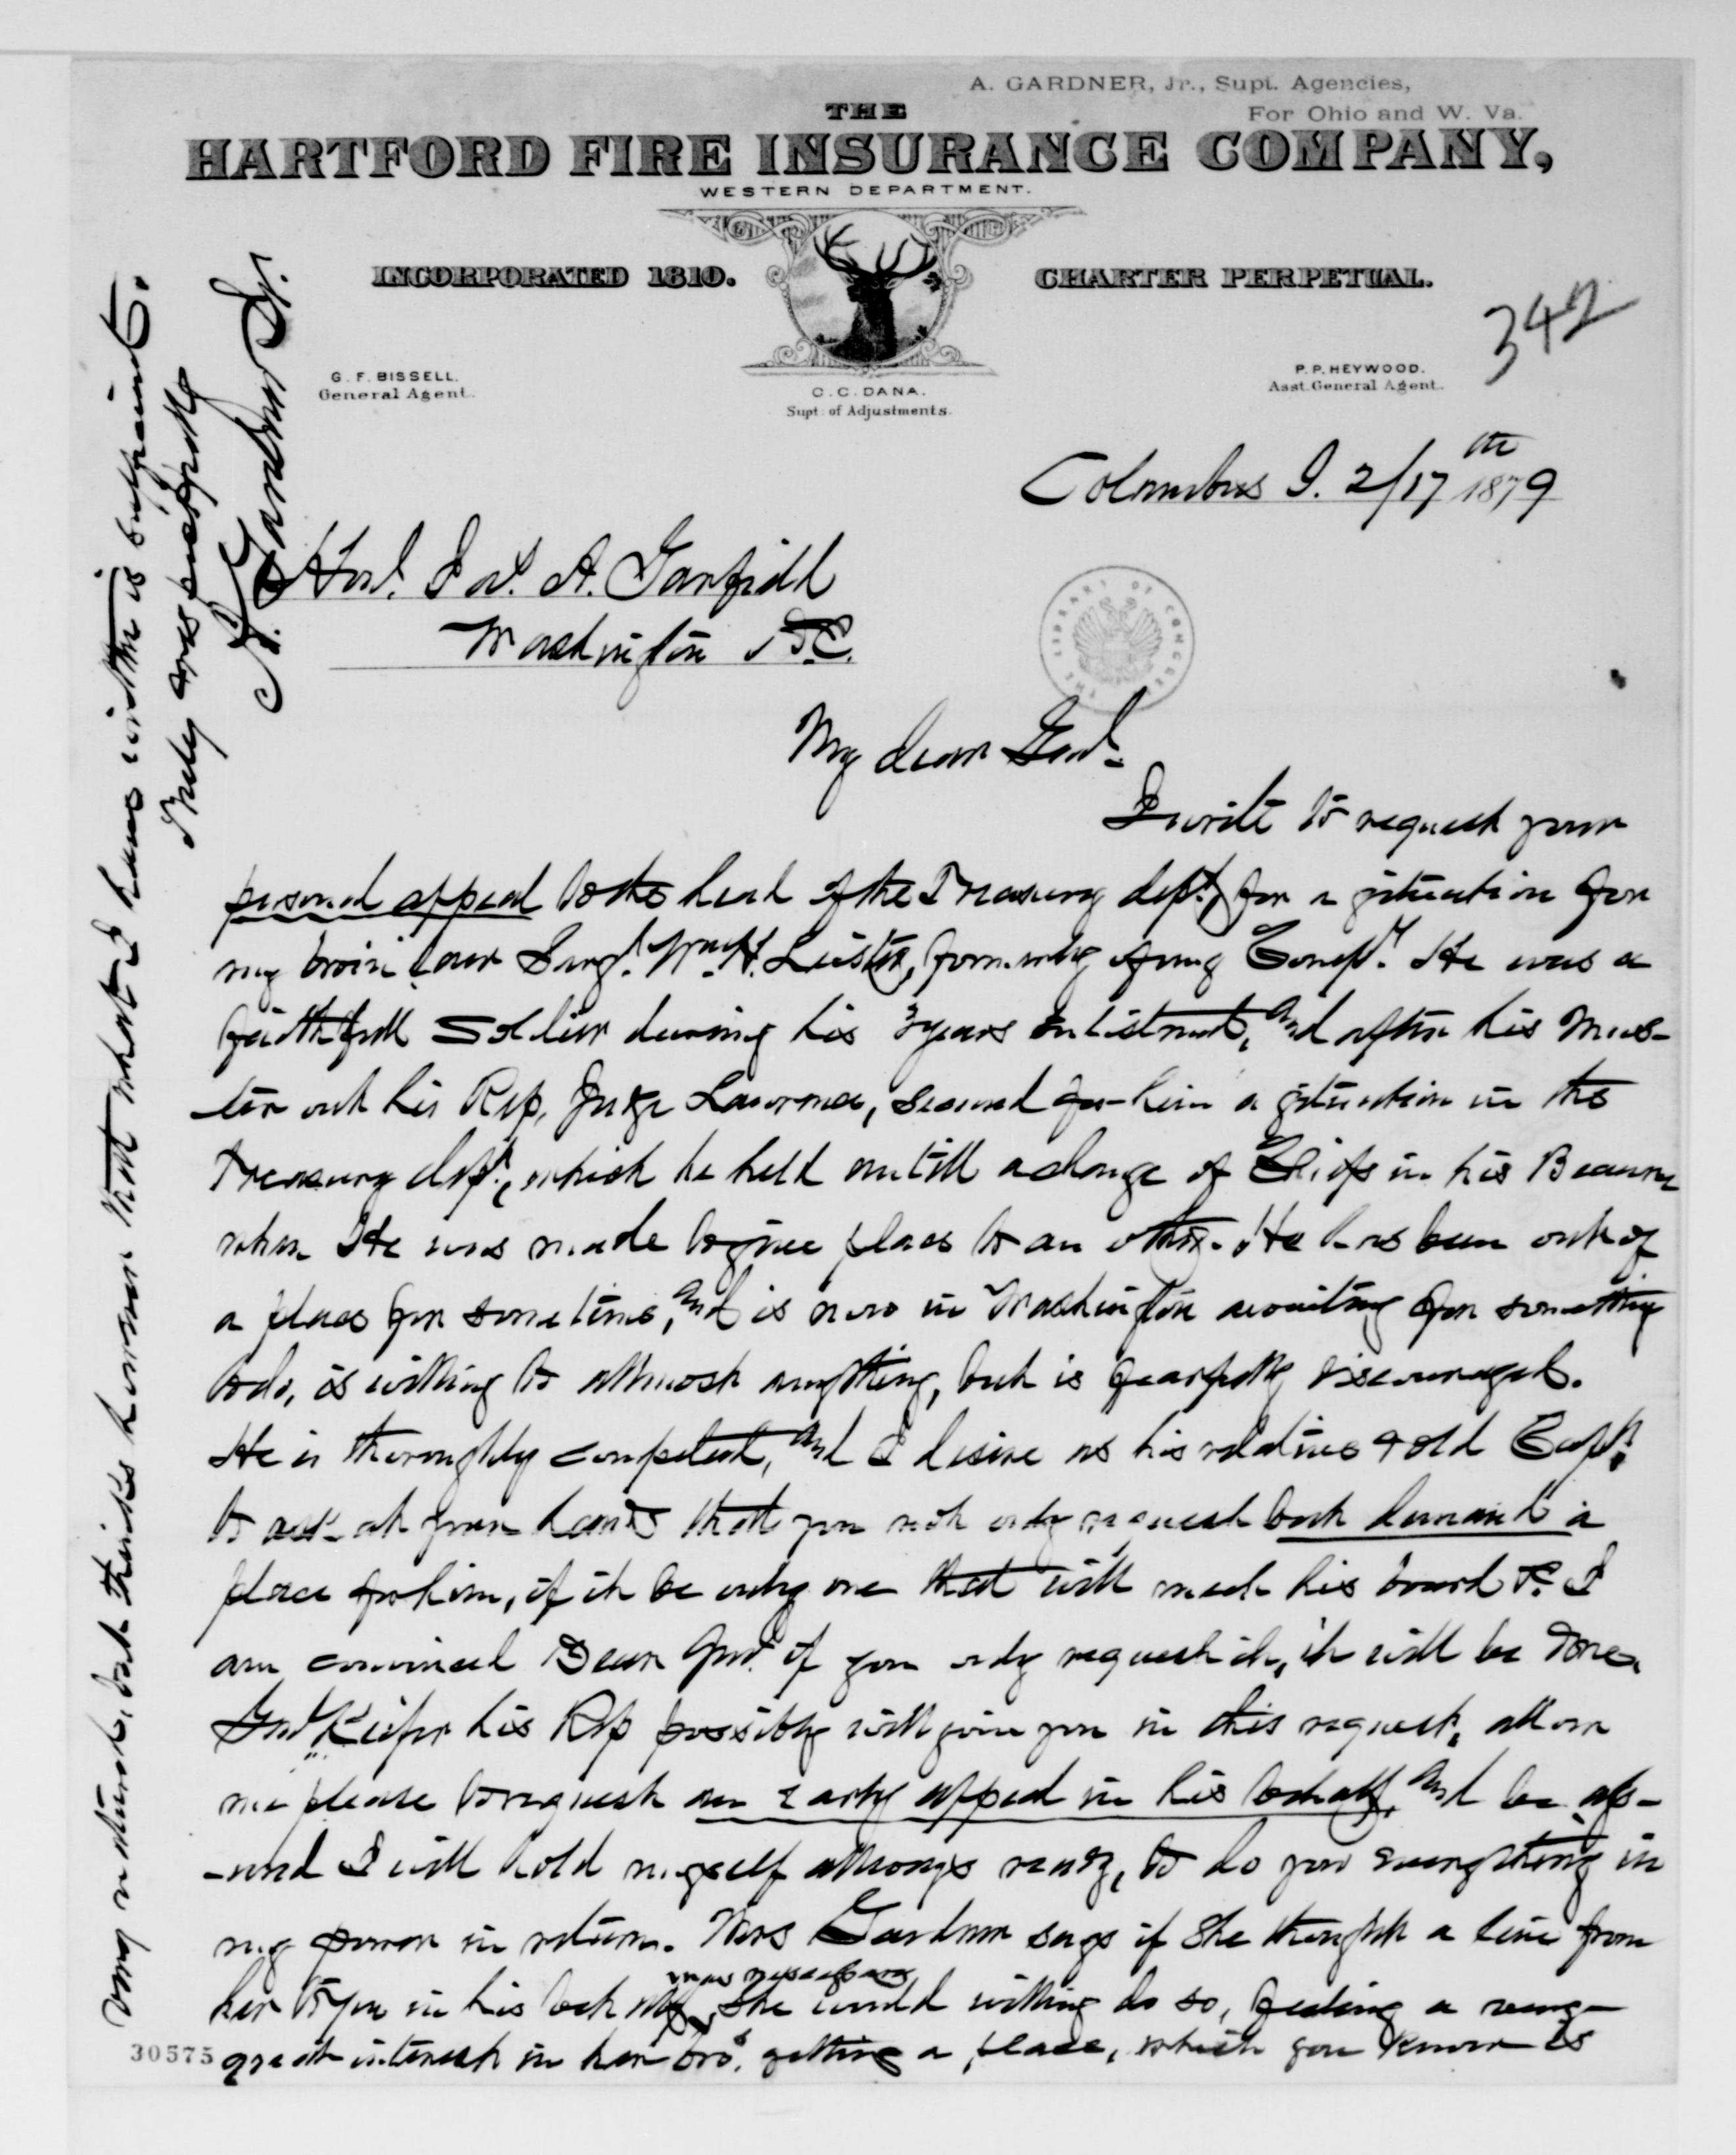 A. GARDNER, Jr., Supt. Agencies,
For Ohio and W. Va.
THE
HARTFORD FIRE INSURANCE COMPANY,
WESTERN DEPARTMENT.
INCORPORATED 1810.
CHARTER PERPETUAL.
342
G. F. BISSELL.
General Agent.
C. C. DANA.
Supt. of Adjustments.
P. P. HEYWOOD.
Asst. General Agent.
Columbus O. 2/17th 1879
Hon. Jas. A. Garfield
Washington D.C.
THE LIBRARY OF CONGRESS
My dear Genl.
I write to request your
personal appeal to the head of the Treasury dept, for a situation for
my bro in law Sergt. Wm. H. Leister, formerly of my Compy. He was a
faithfull Soldier during his 3 years enlistment, and after his Mus-
ter out his Rep, Judge Lawrence, secured for him a situation in the
Treasury dept, which he held untill a change of Chiefs in his Beauru
when He was made to give place to an other. He has been out of
a place for some time, and is now in Washington awaiting for something
to do, is willing to allmost anything, but is fearfully discouraged.
He is thoroughly competent, and I desire as his relative & old Capt.
to ask at your hands that you not only request but demand a
place for him, if it be only one that will meet his board &c. I
am convinced Dear Genl. if you only request it, it will be done.
Genl Keifer his Rep possibly will join you in this request. allow
me please to request an early appeal in his behalf, and be ass-
-ured I will hold myself allways ready, to do you everything in
my power in return. Mrs Gardner says if she thought a line from
her to you in his behalf was necessary she would willing do so, feeling a very
great interest in her bro's. getting a place, which you know is
very natural, but thinks however that what I have written is sufficient.
Truly and respectfully
A. Gardner Jr.
30575